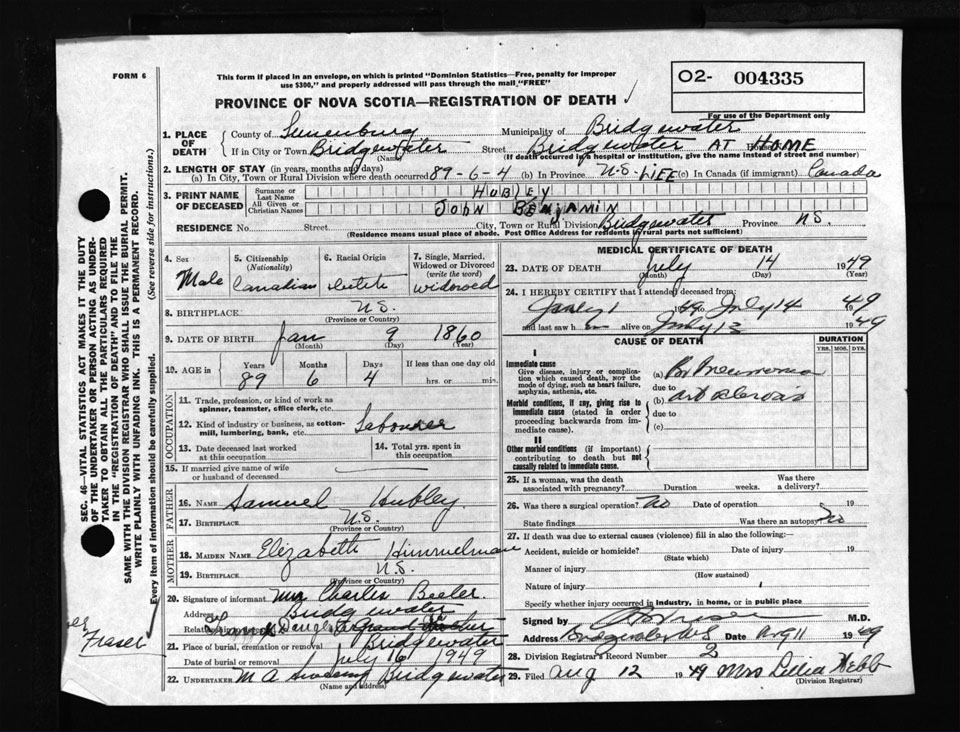 FORM 6
This form if placed in an envelope, on which is printed "Dominion Statistics—Free, penalty for improper
use $300," and properly addressed will pass through the mail "FREE"
O2- 004335
For use of the Department only
PROVINCE OF NOVA SCOTIA—REGISTRATION OF DEATH ✓
1. PLACE OF DEATH { County of Lunenburg Municipality of Bridgewater
If in City or Town Bridgewater Street Bridgewater AT HOME
(Name) (If death occurred in a hospital or institution, give the name instead of street and number)
2. LENGTH OF STAY (in years, months and days)
(a) In City, Town or Rural Division where death occurred 89-6-4 (b) In Province N.S. LIFE (c) In Canada (if immigrant) Canada
3. PRINT NAME OF DECEASED { Surname or Last Name HUBLEY
All Given or Christian Names JOHN BENJAMIN
RESIDENCE No. Street City, Town or Rural Division Bridgewater Province N.S.
(Residence means usual place of abode. Post Office Address for residents in rural parts not sufficient)
4. Sex Male
5. Citizenship (Nationality) Canadian
6. Racial Origin
7. Single, Married, Widowed or Divorced (write the word) widowed
8. BIRTHPLACE N.S.
(Province or Country)
9. DATE OF BIRTH Jan 9 1860
(Month) (Day) (Year)
10. AGE in { Years 89 Months 6 Days 4 If less than one day old
hrs. or min.
OCCUPATION
11. Trade, profession, or kind of work as
spinner, teamster, office clerk, etc.
12. Kind of industry or business, as cotton-
mill, lumbering, bank, etc.
13. Date deceased last worked
at this occupation
14. Total yrs. spent in
this occupation
15. If married give name of wife
or husband of deceased
FATHER
16. NAME Samuel Hubley
17. BIRTHPLACE N.S.
(Province or Country)
MOTHER
18. MAIDEN NAME Elizabeth Himmelman
19. BIRTHPLACE N.S.
(Province or Country)
20. Signature of informant Mrs Charles Beeler
Address Bridgewater
Relationship Grand Daughter
21. Place of burial, cremation or removal Bridgewater
Date of burial or removal July 16 1949
22. UNDERTAKER M A Bridgewater
(Name and address)
MEDICAL CERTIFICATE OF DEATH
23. DATE OF DEATH July 14 1949
(Month) (Day) (Year)
24. I HEREBY CERTIFY that I attended deceased from:
1 1949 to July 14 1949
and last saw h alive on July 12 1949
CAUSE OF DEATH
DURATION
YRS. MOS. DYS.
I
Immediate cause
Give disease, injury or complica-
tion which caused death, NOT the
mode of dying, such as heart failure,
asphyxia, asthenia, etc.
(a) Br Pneumonia
due to
Morbid conditions, if any, giving rise to
immediate cause (stated in order
proceeding backwards from im-
mediate cause).
(b)
due to
(c)
II
Other morbid conditions (if important)
contributing to death but not
causally related to immediate cause.
25. If a woman, was the death
associated with pregnancy? Duration weeks. Was there
a delivery?
26. Was there a surgical operation? No Date of operation 19
State findings Was there an autopsy? No
27. If death was due to external causes (violence) fill in also the following:
Accident, suicide or homicide? Date of injury 19
(State which)
Manner of injury
(How sustained)
Nature of injury
Specify whether injury occurred in industry, in home, or in public place
Signed by M.D.
Address Bridgewater N.S Date Aug 11 1949
28. Division Registrar's Record Number 2
29. Filed Aug 12 1949 Mrs Lillia Webb
(Division Registrar)
SEC. 46—VITAL STATISTICS ACT MAKES IT THE DUTY
OF THE UNDERTAKER OR PERSON ACTING AS UNDER-
TAKER TO OBTAIN ALL THE PARTICULARS REQUIRED
IN THE "REGISTRATION OF DEATH" AND TO FILE THE
SAME WITH THE DIVISION REGISTRAR WHO SHALL ISSUE THE BURIAL PERMIT.
WRITE PLAINLY WITH UNFADING INK. THIS IS A PERMANENT RECORD.
Every item of information should be carefully supplied. (See reverse side for instructions.)
Fraser